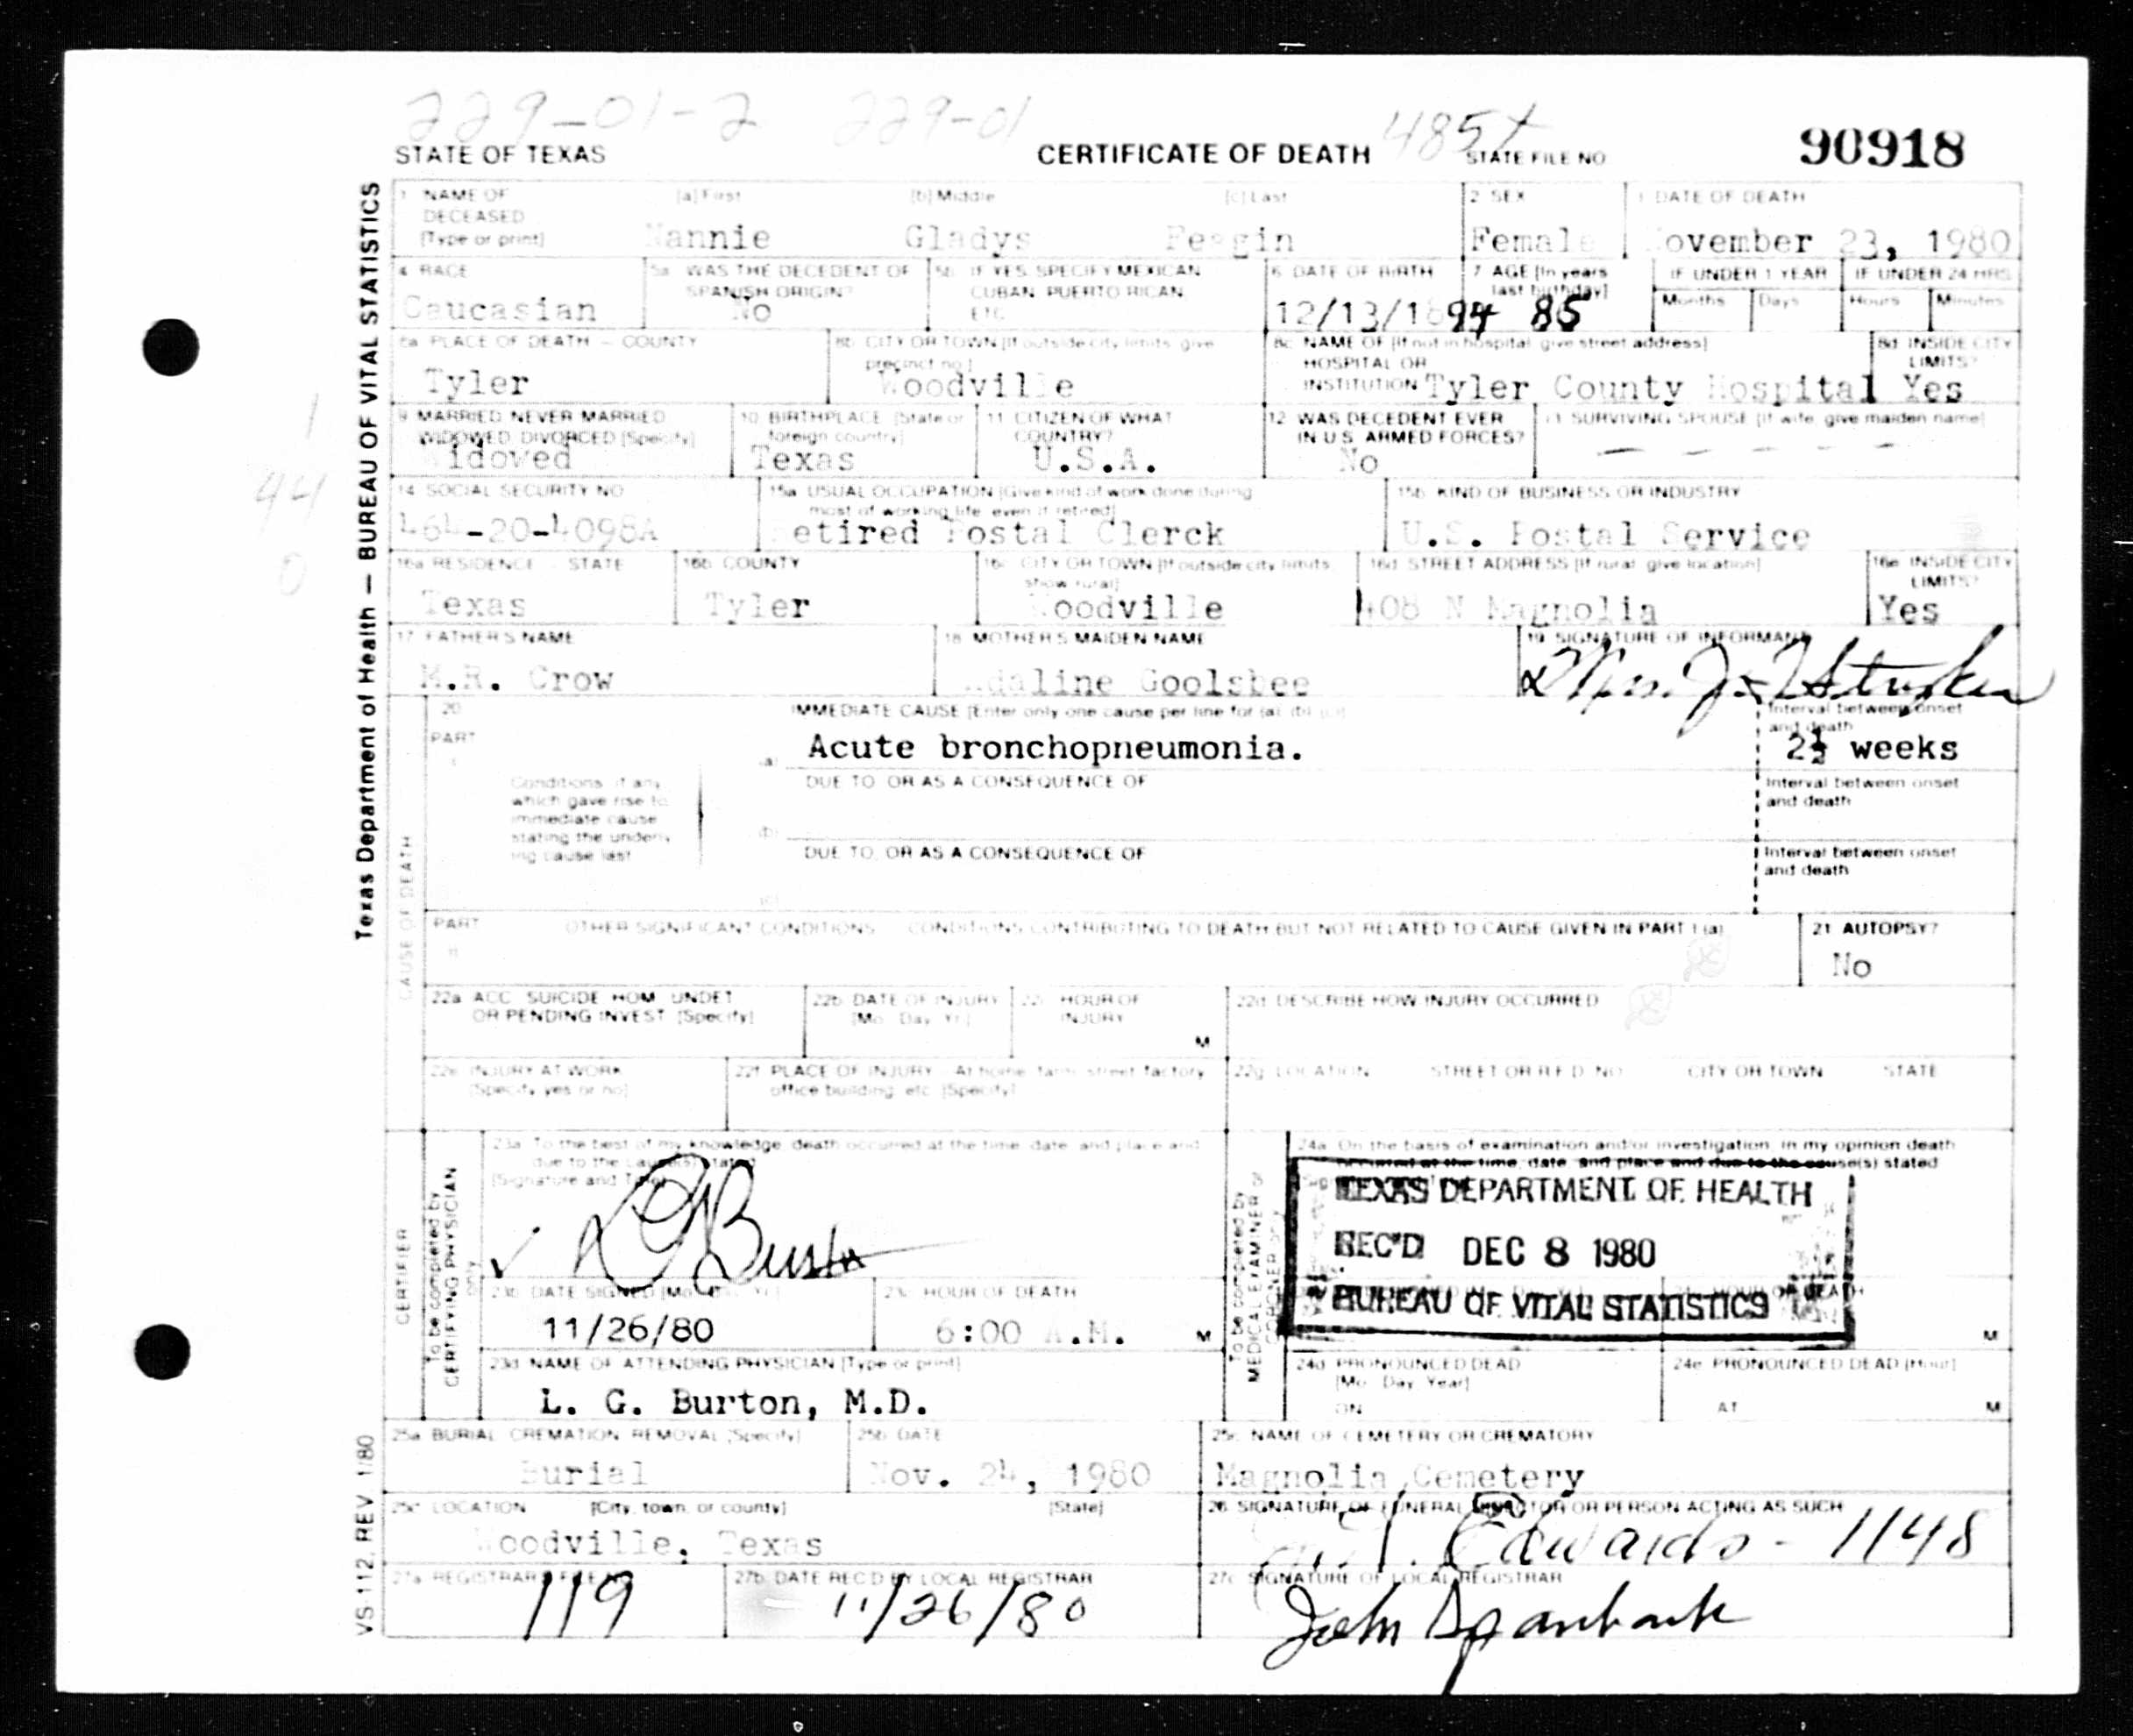 229-01-2 229-01 485x
STATE OF TEXAS CERTIFICATE OF DEATH STATE FILE NO 90918
Texas Department of Health — BUREAU OF VITAL STATISTICS
1 NAME OF DECEASED [Type or print] [a] First [b] Middle [c] Last 2 SEX 3 DATE OF DEATH
Nannie Gladys Feagin Female November 23, 1980
4 RACE 5a WAS THE DECEDENT OF SPANISH ORIGIN? 5b IF YES, SPECIFY MEXICAN CUBAN PUERTO RICAN ETC 6 DATE OF BIRTH 7 AGE [In years last birthday] IF UNDER 1 YEAR IF UNDER 24 HRS
Months Days Hours Minutes
Caucasian No 12/13/1894 85
8a PLACE OF DEATH — COUNTY 8b CITY OR TOWN [If outside city limits, give precinct no] 8c NAME OF [If not in hospital give street address] HOSPITAL OR INSTITUTION 8d INSIDE CITY LIMITS?
Tyler Woodville Tyler County Hospital Yes
9 MARRIED NEVER MARRIED WIDOWED DIVORCED [Specify] 10 BIRTHPLACE [State or foreign country] 11 CITIZEN OF WHAT COUNTRY? 12 WAS DECEDENT EVER IN U.S. ARMED FORCES? 13 SURVIVING SPOUSE [If wife, give maiden name]
Widowed Texas U.S.A. No - - - - -
1
44
0
14 SOCIAL SECURITY NO 15a USUAL OCCUPATION [Give kind of work done during most of working life, even if retired] 15b KIND OF BUSINESS OR INDUSTRY
464-20-4098A Retired Postal Clerck U.S. Postal Service
16a RESIDENCE - STATE 16b COUNTY 16c CITY OR TOWN [If outside city limits, show rural] 16d STREET ADDRESS [If rural, give location] 16e INSIDE CITY LIMITS?
Texas Tyler Woodville 408 N Magnolia Yes
17 FATHER'S NAME 18 MOTHER'S MAIDEN NAME 19 SIGNATURE OF INFORMANT
M.R. Crow Adaline Goolsbee Mrs.
20 IMMEDIATE CAUSE [Enter only one cause per line for (a), (b), (c)] Interval between onset and death
PART I (a) Acute bronchopneumonia. 2½ weeks
Conditions if any which gave rise to immediate cause stating the underlying cause last
DUE TO, OR AS A CONSEQUENCE OF Interval between onset and death
(b)
DUE TO, OR AS A CONSEQUENCE OF Interval between onset and death
(c)
CAUSE OF DEATH
PART II OTHER SIGNIFICANT CONDITIONS CONDITIONS CONTRIBUTING TO DEATH BUT NOT RELATED TO CAUSE GIVEN IN PART I (a) 21 AUTOPSY?
No
22a ACC. SUICIDE HOM. UNDET OR PENDING INVEST [Specify] 22b DATE OF INJURY [Mo. Day, Yr.] 22c HOUR OF INJURY M 22d DESCRIBE HOW INJURY OCCURRED
22e INJURY AT WORK [Specify yes or no] 22f PLACE OF INJURY - At home, farm, street, factory office building, etc. [Specify] 22g LOCATION STREET OR R.F.D. NO CITY OR TOWN STATE
CERTIFIER
To be completed by CERTIFYING PHYSICIAN only
23a To the best of my knowledge death occurred at the time, date, and place and due to the cause(s) stated
[Signature and Title]
L G Burton
To be completed by MEDICAL EXAMINER or CORONER
24a On the basis of examination and/or investigation, in my opinion death occurred at the time, date, and place and due to the cause(s) stated
TEXAS DEPARTMENT OF HEALTH
REC'D DEC 8 1980
BUREAU OF VITAL STATISTICS
23b DATE SIGNED [Mo. Day, Yr.] 23c HOUR OF DEATH HOUR OF DEATH
11/26/80 6:00 A.M. M M
23d NAME OF ATTENDING PHYSICIAN [Type or print] 24d PRONOUNCED DEAD [Mo. Day, Year] 24e PRONOUNCED DEAD [Hour]
L. G. Burton, M.D. ON AT M
25a BURIAL, CREMATION, REMOVAL [Specify] 25b DATE 25c NAME OF CEMETERY OR CREMATORY
Burial Nov. 24, 1980 Magnolia Cemetery
25d LOCATION [City, town, or county] [State] 26 SIGNATURE OF FUNERAL DIRECTOR OR PERSON ACTING AS SUCH
Woodville, Texas Edwards - 1148
27a REGISTRAR'S FILE NO 27b DATE REC'D BY LOCAL REGISTRAR 27c SIGNATURE OF LOCAL REGISTRAR
119 11/26/80 John
VS-112, REV 1/80